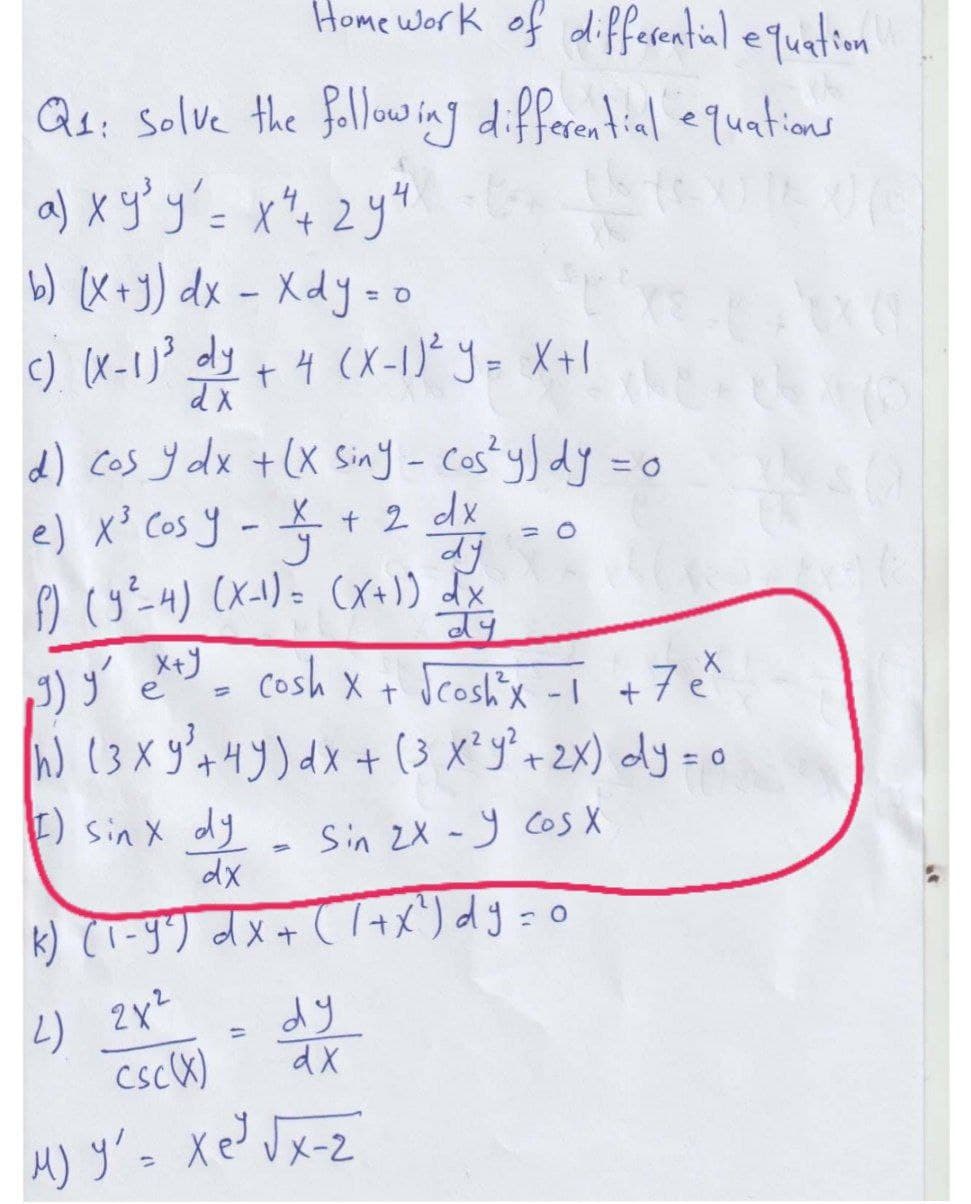 Homework of differential equation
Q1: solve the following differential equations
a) x y³ y' = x⁴ + 2 y⁴
b) (x+y) dx - x dy = 0
c) (x-1)³ dy/dx + 4 (x-1)² y = x+1
d) cos y dx + (x sin y - cos² y) dy = 0
e) x³ cos y - x/y + 2 dx/dy = 0
f) (y²-4) (x-1) = (x+1) dx/dy
g) y' e^(x+y) = cosh x + √(cosh²x - 1) + 7 e^x
h) (3 x y³ + 4y) dx + (3 x² y² + 2x) dy = 0
I) sin x dy/dx = sin 2x - y cos x
k) (1-y²) dx + (1+x²) dy = 0
L) 2x²/csc(x) = dy/dx
M) y' = x e^y √(x-2)